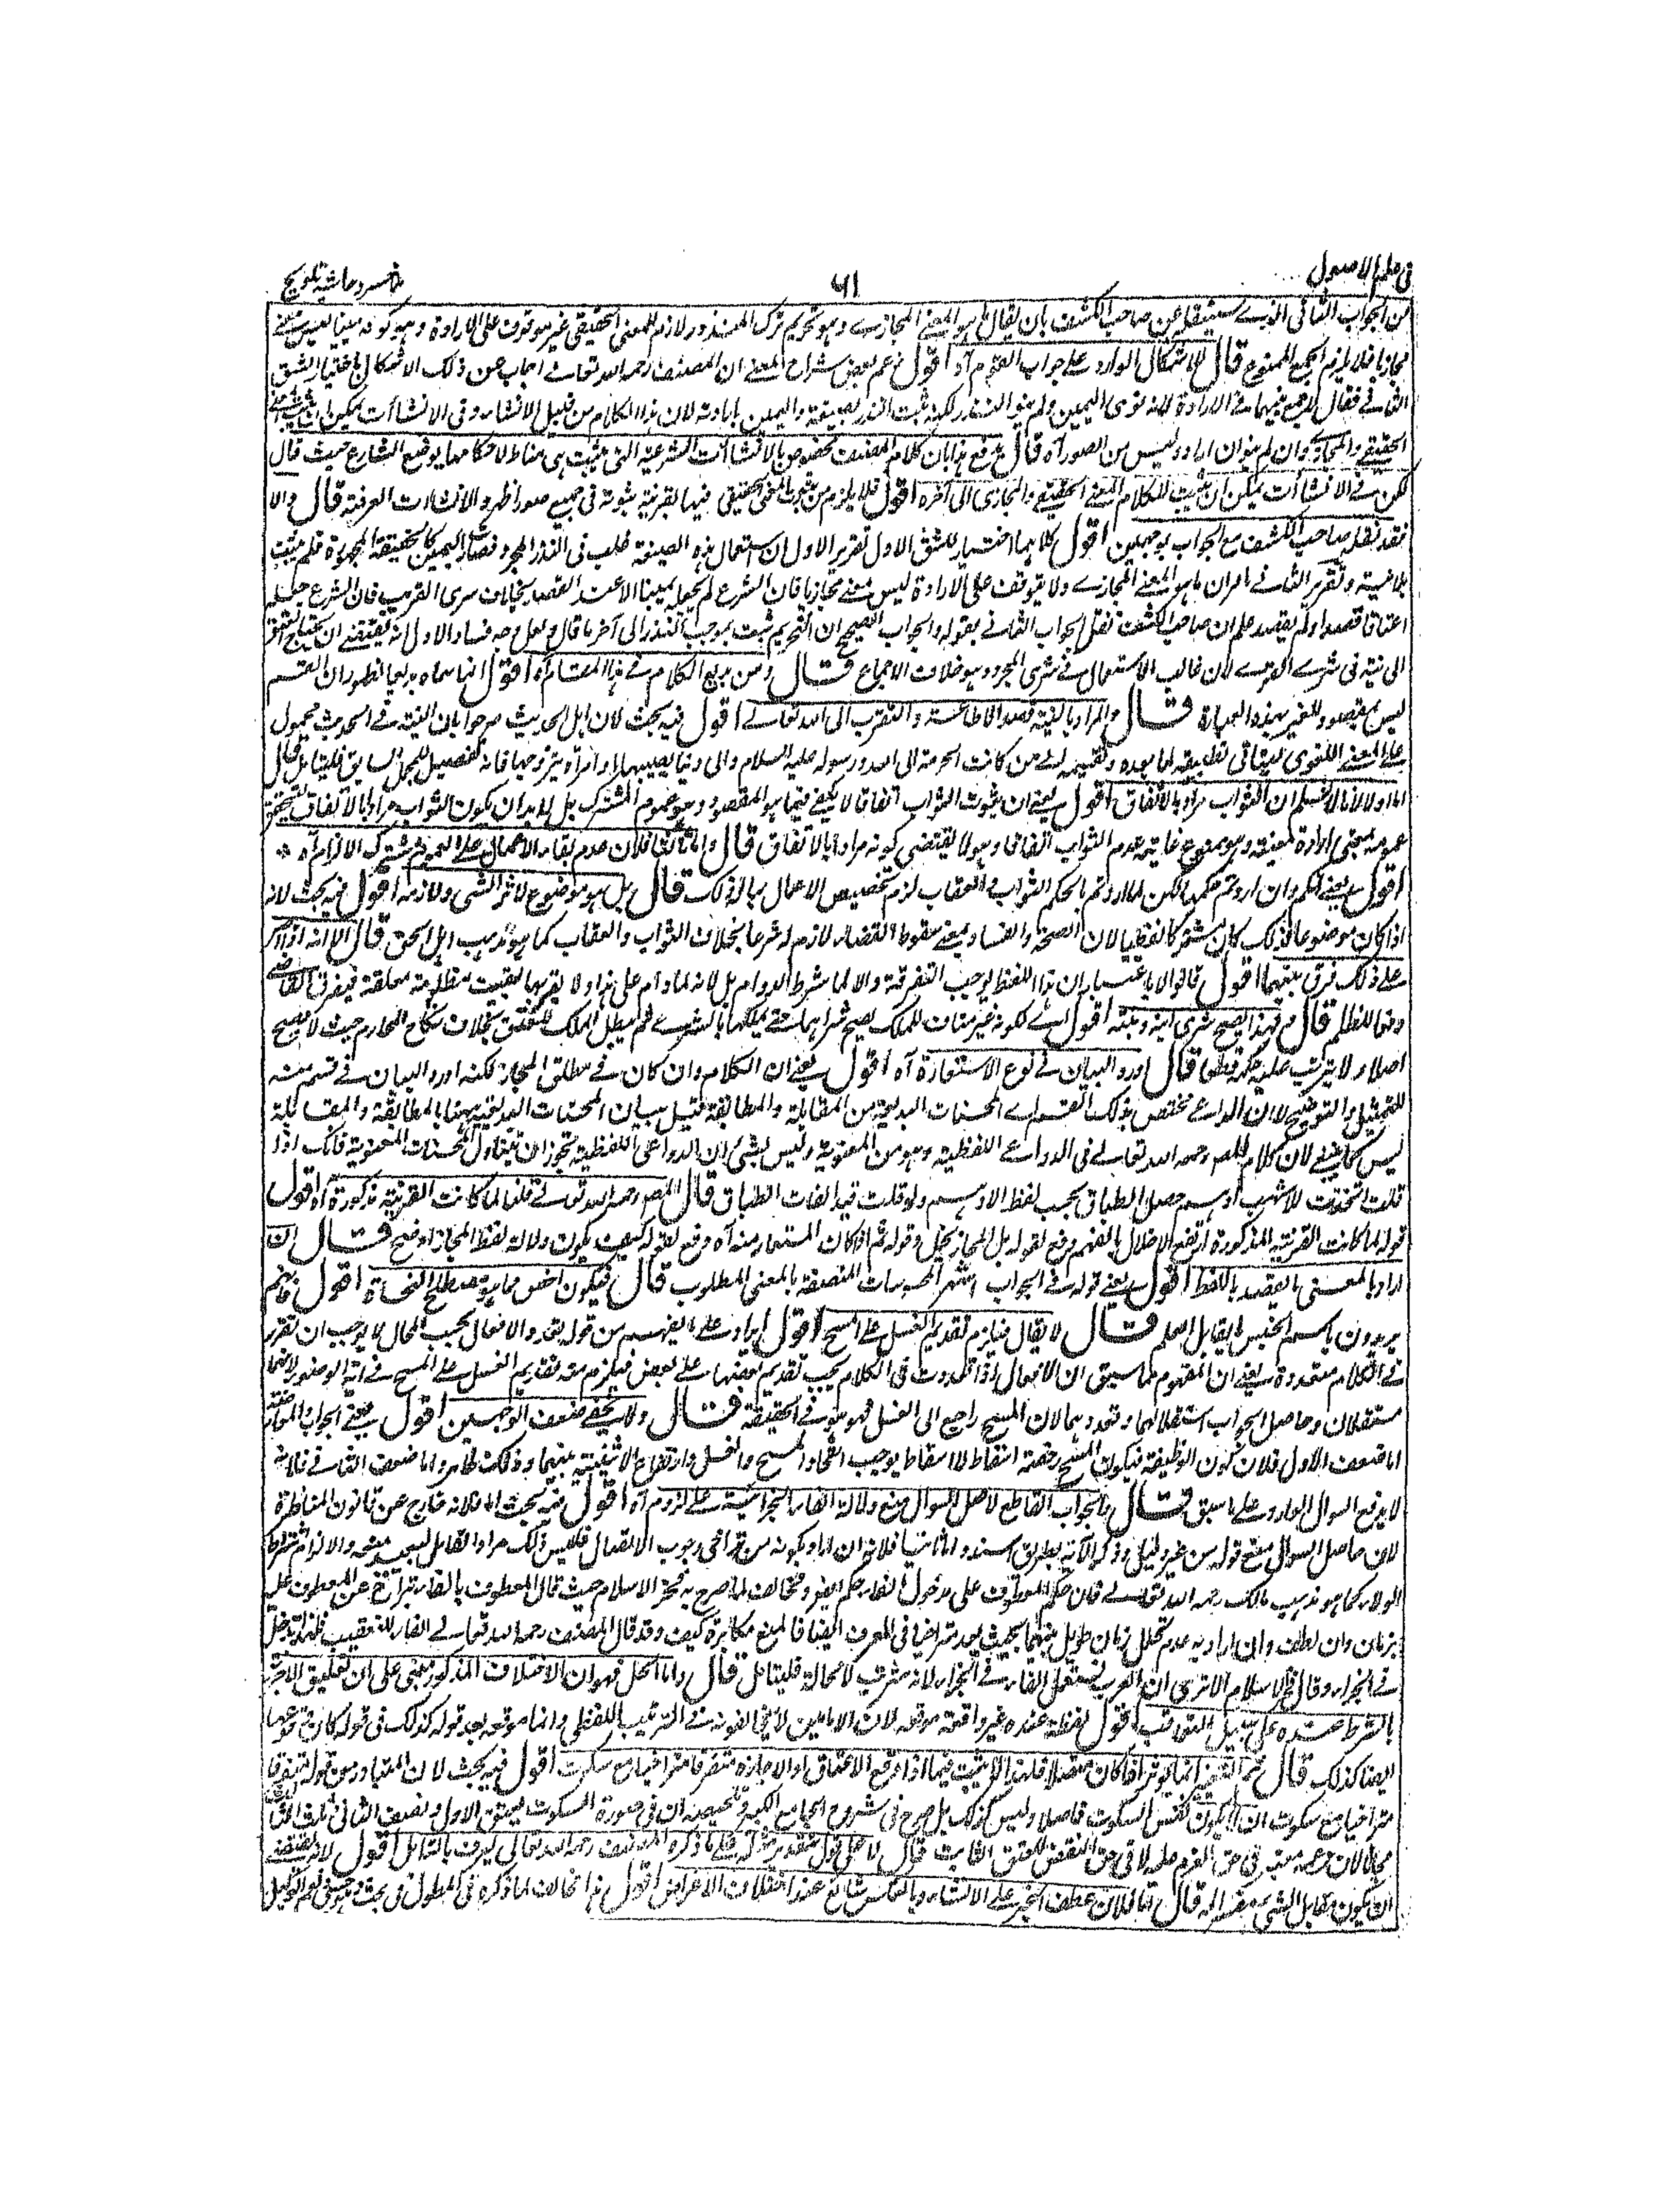 في علم الاصول
٦١
ملا خسرو حاشية تلويح
من الجواب الثاني الذي سينقله عن صاحب الكشف بان يقال ما هو المعنى المجازي وهو تحريم ترك المنذور لازم للمعنى الحقيقي غير موقوف على الارادة وهو كونه يمينا ليس معنى
مجازيا فلا يلزم الجمع الممنوع قال للاشكال الوارد على جواب القوم آه اقول زعم بعض شراح المغني ان المصنف رحمه الله تعالى اجاب عن ذلك الاشكال باختيار الشق
الثاني فقال لا جمع بينهما في الارادة لانه نوى اليمين ولم ينو النذر لكنه ثبت النذر بصيغته واليمين بارادته لان هذا الكلام من قبيل الانشاء وفي الانشاآت يمكن ان يثبت المعنى
الحقيقي والمجازي وان لم ينو ان اراد وليس من الصور آه قال يدفع هذا بان كلام المصنف مخصوص بالانشاآت الشرعية التي يثبت بها مناط لاحكامها بوضع الشارع حيث قال
لكن في الانشاآت يمكن ان يثبت للكلام المعنى الحقيقي والمجازي الى آخره اقول فلا يلزم من ثبوت المعنى الحقيقي فيها بقرينة ثبوته في جميع صور اظهر والانشاءات العرفية قال والا
فقد نقله صاحب الكشف مع الجواب بوجهين اقول كلاهما اختيار للشق الاول تقرير الاول ان استعمال هذه الصيغة غلب في النذر المجرد فصار اليمين كالحقيقة المهجورة فلم يثبت
بلا نية وتقرير الثاني امران ما هو المعنى المجازي ولا يتوقف على الارادة ليس معنى مجازيا فان الشرع لم يجعله يمينا الا عند القصد بخلاف شرى القريب فان الشرع جعله
اعتاقا قصد او لم يقصد علم ان صاحب الكشف نقل الجواب الثاني بقوله والجواب الصحيح ان التحريم يثبت بموجب النذر الى آخر ما قال ولعل وجه فساد الاول انه يقتضي ان يحتاج العتق
الى نية في شرى القريب لان غالب الاستعمال في شرى المجرد وهو خلاف الاجماع قال ومن بديع الكلام في هذا المقام آه اقول انما سماه بديعا لظهور ان القسم
ليس بمقصود للغير بهذه العبارة قال والمراد بالنية قصد الاطاعة والتقرب الى الله تعالى اقول فيه بحث لان اهل الحديث صرحوا بان النية في الحديث محمول
على المعنى اللغوي ليتأتى تطبيقه لما بعده وتقسيمه الى من كانت هجرته الى الله ورسوله عليه السلام والى دنيا يصيبها او امرأة يتزوجها فانه تفصيل للمجمل السابق فليتأمل قال
اما اولا فلانا لا نسلم ان الثواب مراد بالاتفاق اقول يعني ان ثبوت الثواب اتفاقا لا يكفي فيما هو المقصود وهو عموم المشترك بل لا بد ان يكون الثواب مرادا بالاتفاق ليتحقق
عمومه بمعنى ارادة معنييه وهو ممنوع غايته عدم الثواب اتفاقا وهو لا يقتضي كونه مرادا بالاتفاق قال واما ثالثا فلان عدم بقاء الاعمال على العموم مشترك الالزام آه
اقول يعني انكم وان اردتم حكمها لكن لما اردتم بالحكم الثواب والعقاب لزم تخصيص الاعمال بما له ذلك قال بل هو موضوع لاثر الشيء ولازمه اقول فيه بحث لانه
اذا كان موضوعا لذلك كان مشتركا لفظيا لان الصحة والفساد بمعنى سقوط القضاء لازم له شرعا بخلاف الثواب والعقاب كما هو مذهب اهل الحق قال الا انه اذا اصر
على ذلك فرق بينهما اقول قالوا لا باعتبار ان هذا اللفظ يوجب التفرقة والا لما شرط الدوام بل لانه لما دام على هذا ولا يقربها بقيت مظلومة معلقة فيفرق القاضي
دفعا للظلم قال فهذا يصح شرى امه وبنته اقول اي لكونه غير مناف للملك يصح شراهما حتى يملكها بالشرى ثم يبطل الملك للعتق بخلاف نكاح المحارم حيث لا يصح
اصلا ولا يترتب عليه حكمه قطعا قال اورد البيان في نوع الاستعارة آه اقول يعني ان الكلام وان كان في مطلق المجاز لكنه اورد البيان في قسم منه
للتمثيل والتوضيح لا ان الداعي مختص بذلك القسم اي المحسنات البديعية من المقابلة والمطابقة قيل بيان المحسنات البديعية ههنا بالمطابقة والمقابلة
ليس كما ينبغي لان كلام المصـ رحمه الله تعالى في الدواعي اللفظية وهو من المعنوية وليس بشيء لان الدواعي اللفظية تجوز ان يتناول المحسنات المعنوية فانك اذا
قلت اتخذت للاشهب ادهم حصل الطباق بحسب لفظ الادهم ولو قلت قيدا لفات الطباق قال المصـ رحمه الله تعالى قلنا لما كانت القرينة مذكورة آه اقول
قوله لما كانت القرينة المذكورة ارتفع الاخلال بالفهم دفع لقوله بل المجاز يخل وقوله ثم اذا كان المستعار منه آه دفع لقوله كيف يكون دلالة لفظ المجاز اوضح قال ان
اراد بالمعنى ما يقصد باللفظ اقول يعني قوله في الجواب اشهر المحسوسات المتصفة بالمعنى المطلوب قال فيكون اخص مما هو مصطلح النحاة اقول فانهم
يريدون باسم الجنس ما يقابل العلم قال لا يقال فيلزم تقديم الغسل على المسح اقول ايراد على ما يفهم من قوله تعدد الافعال بحسب المحال لا يوجب ان تقرر
في الكلام متعددة يعني ان المفهوم مما سبق ان الافعال اذا تعددت في الكلام يجب تقديم بعضها على بعض فيلزم منه تقديم الغسل على المسح في آية الوضوء لانهما
مستقلان وحاصل الجواب استقلالهما وتعددهما لان المسح راجع الى الغسل فهو هو في الحقيقة قال ولا يخفى ضعف الوجهين اقول يعني الجواب والمعارضة
اما ضعف الاول فلان كون الوظيفة فيكون المسح رخصة اسقاط لا اسقاط يوجب اتحاد المسح والغسل وارتفاع الاثنينية بينهما وذلك ظاهر واما ضعف الثاني فلانه
لا يدفع السؤال الوارد على ما سبق قال والجواب القاطع لاصل السؤال منع دلالة الفاء الجزائية على لزوم آه اقول فيه بحث اما اولا فلانه خارج عن قانون المناظرة
لان حاصل السؤال منع قوله من غير دليل وذكر الآية بطريق السند واما ثانيا فلانه ان اراد بكونه من تراخي وجوب الاتصال فليس ذلك مراد القائل ليس بصدد منعه والا لزم شرط
الولاء كما هو مذهب مالك رحمه الله تعالى فان حكم المعطوف على مدخول الفاء حكم الفور ومخالف لما صرح به فخر الاسلام حيث قال المعطوف بالفاء يتراخى عن المعطوف عليه
بزمان وان لطف وان اراد به عدم تخلل زمان طويل بينهما بحيث يعد متراخيا في العرف ايضا فالمنع مكابرة كيف وقد قال المصنف رحمه الله تعالى الفاء للتعقيب فلهذا تدخل
في الجزاء وقال فخر الاسلام الا ترى ان العرب تستعمل الفاء في الجزاء لانه مترتب لا محالة فليتأمل قال واما الحل فهو ان الاختلاف المذكور مبني على ان تعليق الاجزية
بالشرط عنده على سبيل التعاقب اقول لفظة عنده غير واقعة موقعه لان الامامين لا يخالفونه في الترتيب اللفظي وانما موقعه بعد قوله كذلك في قوله كان وقوعها
ايضا كذلك قال ثم التغيير انما يؤثر اذا كان متصلا فلهذا لا يثبت فيما اذا وقع الاعتاق او الاجازة متفرقا متراخيا مع سكوت اقول فيه بحث لان المتبادر من قوله متفرقا
متراخيا مع سكوت ان لا يكون نفس السكوت فاصلا وليس كذلك بل صرح في شروح الجامع الكبير وتلخيصه ان في صورة السكوت يعتق الاول ونصف الثاني وثلث الثالث
مجانا لان زعمه معتبر في حق الغرم عليه لا في حق النقض للعتق الثابت قال لا على قول متقدم مثله على ما ذكره المصنف رحمه الله تعالى يعرف بالتأمل اقول لانه يقتضي
ان يكون مقابل الشيء مفسرا له قال اما فلان عطف الخبر على الانشاء وبالعكس شائع عند اختلاف الاغراض اقول هذا مخالف لما ذكره في المطول في بحث وحسبي ونعم الوكيل